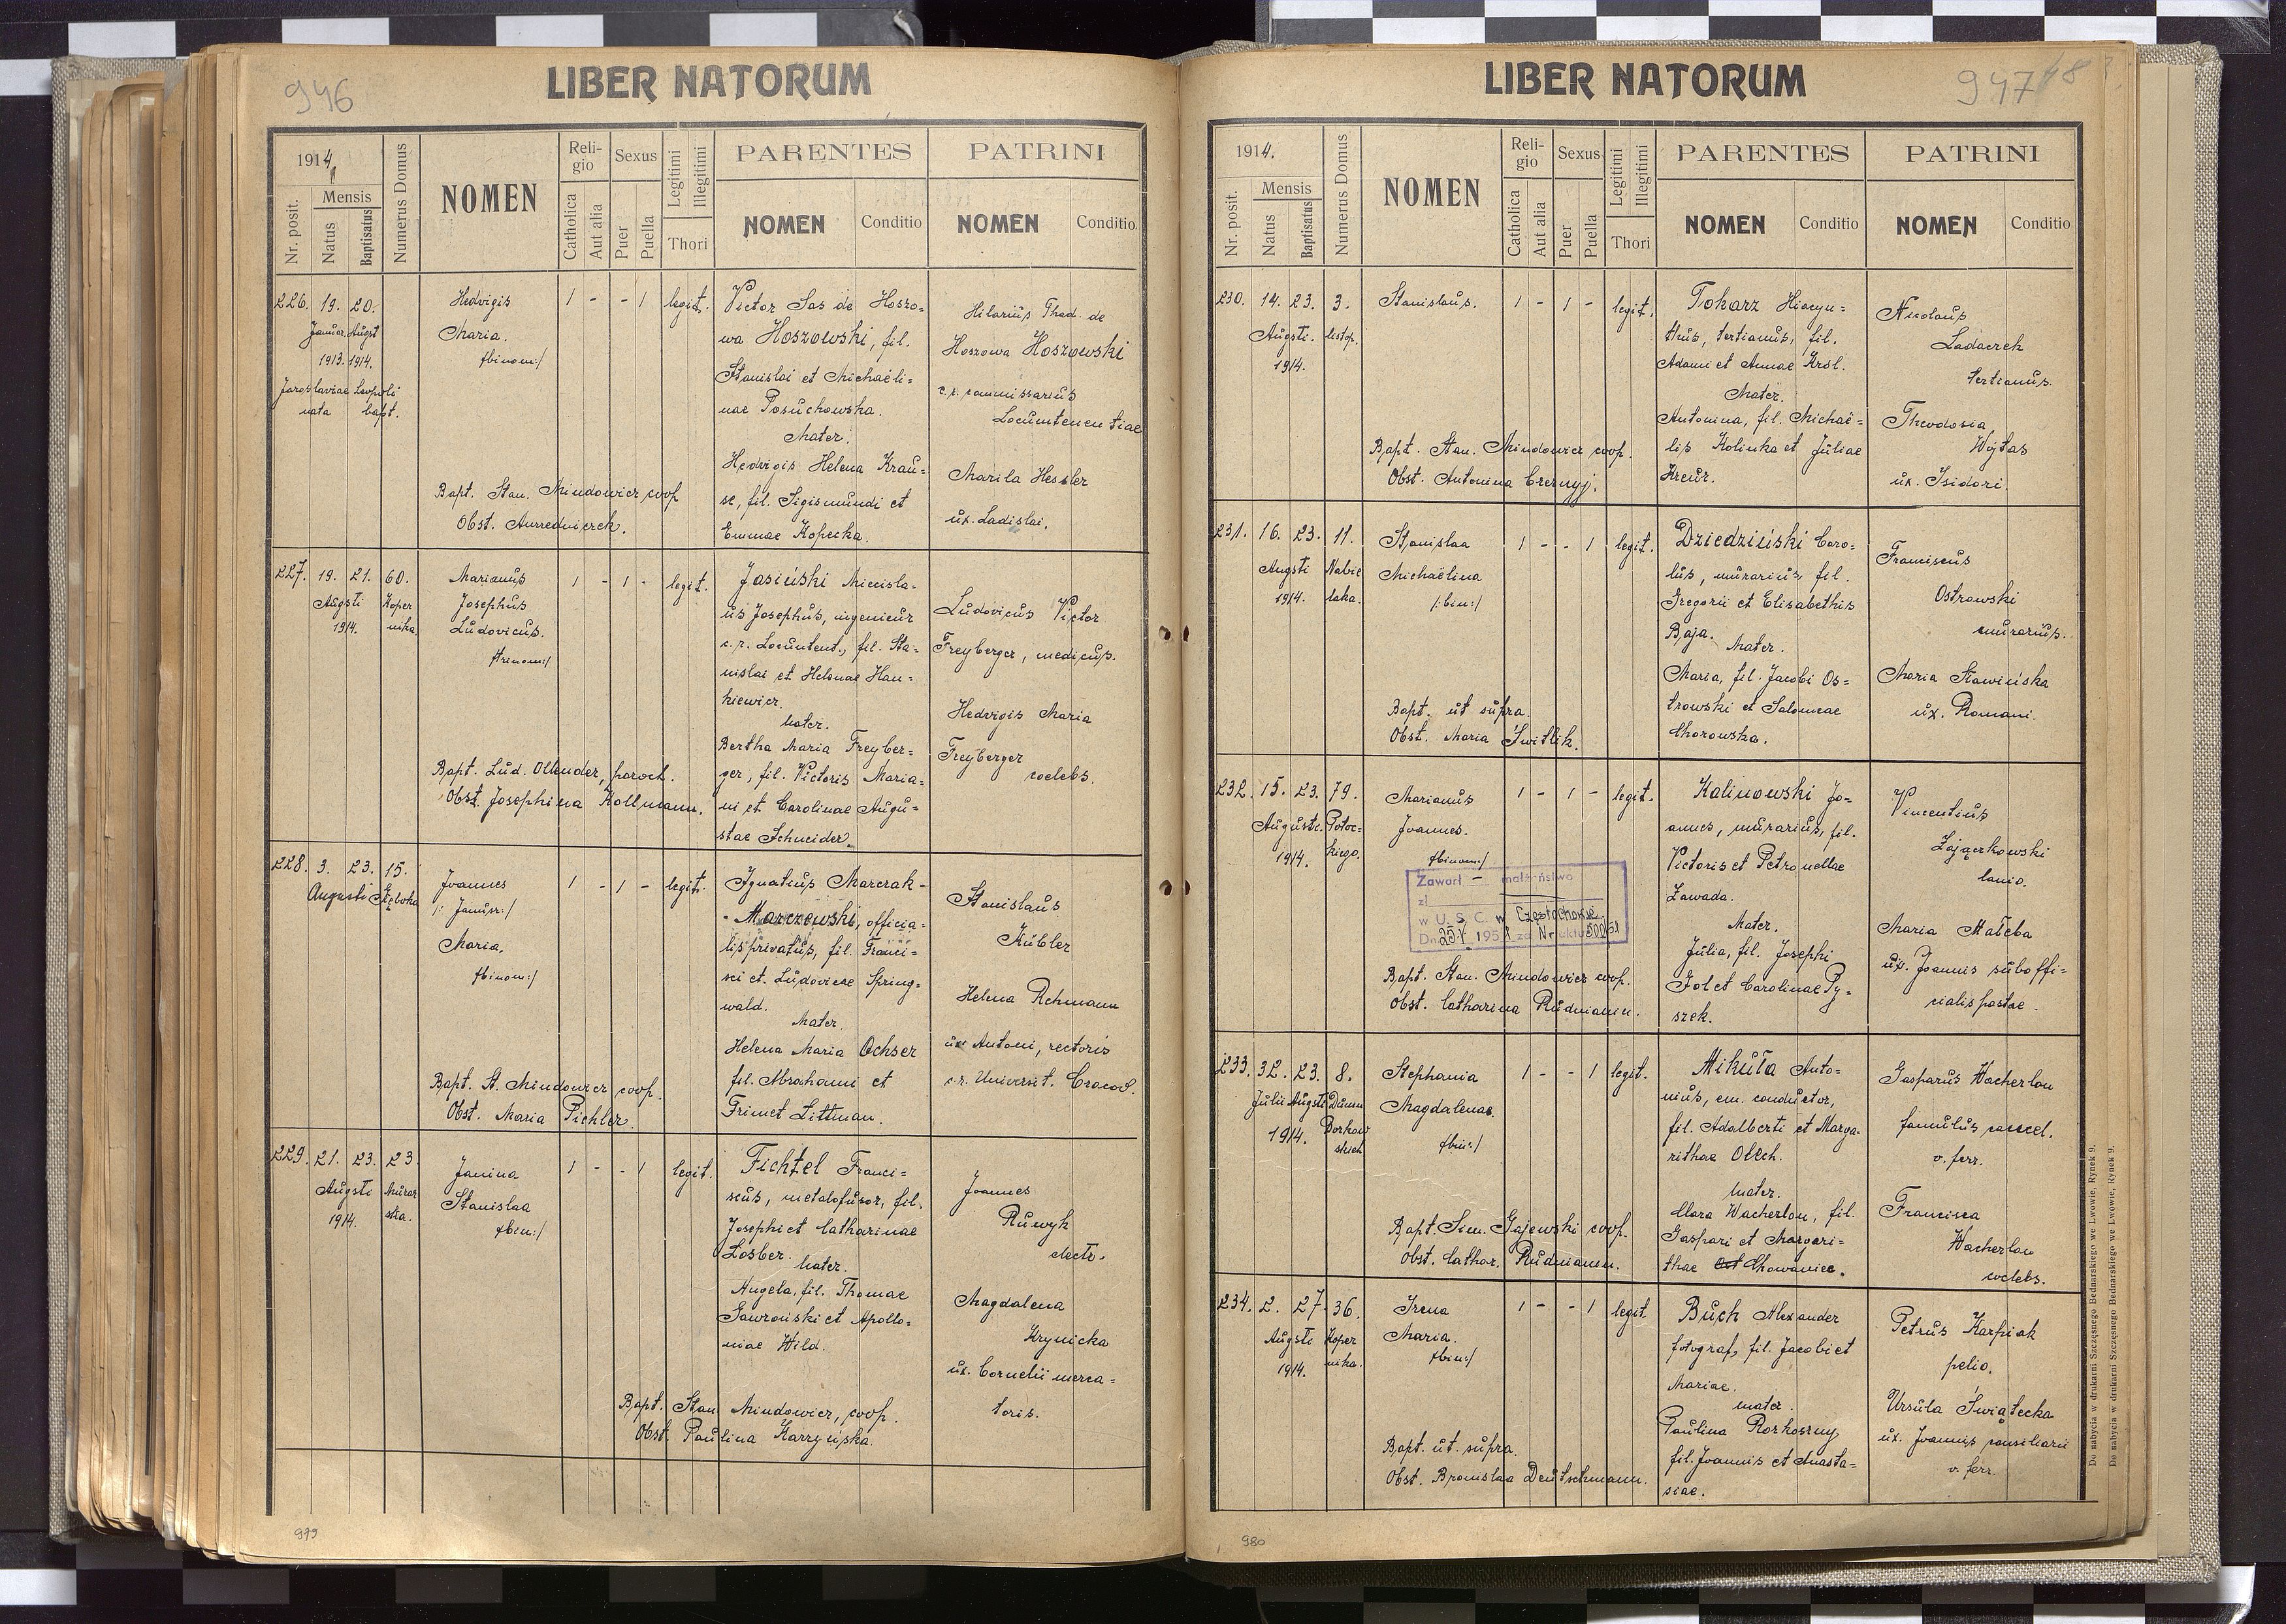 946
LIBER NATORUM
1914.
Nr. posit.
Mensis
Natus
Baptisatus
Numerus Domus
NOMEN
Religio
Catholica
Aut alia
Sexus
Puer
Puella
Legitimi
Illegitimi
Thori
PARENTES
NOMEN
Conditio
PATRINI
NOMEN
Conditio
226. 19. 20.
Januar. Augst
1913. 1914.
Jaroslaviae Leopoli
nata bapt.
Hedvigis
Maria.
/:binom:/
1 - - 1 legit.
Victor Sas de Hoszo=
wa Hoszowski, fil.
Stanislai et Michaëli=
nae Posuchowska.
Mater.
Hedvigis Helena Krau=
se, fil. Sigismundi et
Emmae Kopecka.
Hilarius Thad. de
Hoszowa Hoszowski
c.r. commissarius
Locumtenentiae
Marila Hessler
ux. Ladislai.
Bapt. Stan. Mindowicz coop
227. 19. 21. 60.
Augsti Koper
1914. nika
Marianus
Josephus
Ludovicus.
/:trinom:/
1 - 1 - legit.
Jasiński Miecisla=
us Josephus, ingenieur
c.r. Locumtent., fil. Sta=
nislai et Helenae Han=
kiewicz.
Mater.
Bertha Maria Freyber=
ger, fil. Victoris Maria=
ni et Carolinae Augu=
stae Schneider.
Ludovicus Victor
Freyberger, medicus.
Hedvigis Maria
Freyberger
coelebs.
Bapt. Lud. Ollender, paroch.
Obst. Josephina Kollmann.
228. 3. 23. 15.
Augusti Głęboka
Joannes
/: Janusz:/
Maria.
/:binom:/
1 - 1 - legit.
Ignatius Marczak-
- Marczewski, officia=
lis privatus, fil. Franci=
sci et Ludovicae Spring=
wald.
Mater.
Helena Maria Ochser
fil. Abrahami et
Frimet Littman.
Stanislaus
Kübler
Helena Rehmann
ux. Antoni, rectoris
c.r. Universit. Cracov.
Bapt. St. Mindowicz coop.
Obst. Maria Pichler.
229. 21. 23. 23.
Augsti Murar
1914. ska.
Janina
Stanislaa
/:bin:/
1 - - 1 legit.
Fichtel Franci=
scus, metalofusor, fil.
Josephi et Catharinae
Losber.
Mater.
Angela, fil. Thomae
Gawroński et Apollo=
niae Wild.
Joannes
electr.
Magdalena
Krynicka
ux. Cornelii merca=
toris.
Bapt. Stan Mindowicz, coop.
Obst. Paulina Karzyńska.
979
947
LIBER NATORUM
1914.
Nr. posit.
Mensis
Natus
Baptisatus
Numerus Domus
NOMEN
Religio
Catholica
Aut alia
Sexus
Puer
Puella
Legitimi
Illegitimi
Thori
PARENTES
NOMEN
Conditio
PATRINI
NOMEN
Conditio
230. 14. 23. 3.
Augsti. listop.
1914.
Stanislaus.
1 - 1 - legit.
Tokarz Hiacyn=
thus, tertianus, fil.
Adami et Annae Król.
Mater.
Antonina, fil. Michaë=
lis Kolinka et Juliae
Nicolaus
Ladaczek
tertianus.
Theodosia
Wojtas
ux. Isidori.
Bapt. Stan. Mindowicz coop.
Obst. Antonina Czernyj.
231. 16. 23. 11.
Augsti Nabie
1914. laka.
Stanislaa
Michaëlina
/:bin:/
1 - - 1 legit.
Dziedziński Caro=
lus, murarius, fil.
Gregorii et Elisabethis
Baja.
Mater.
Maria, fil. Jacobi Os=
trowski et Salomeae
Chorowska.
Franciscus
Ostrowski
murarius.
Maria Sławińska
ux. Romani.
Bapt. ut supra.
Obst. Maria Świtlik.
232. 15. 23. 79.
Augusti. Potoc=
1914. kiego.
Marianus
Joannes.
/:binom:/
1 - 1 - legit.
Kalinowski Jo=
annes, murarius, fil.
Victoris et Petronellae
Zawada.
Mater.
Julia, fil. Josephi
Jol et Carolinae Py=
szek.
Vincentius
Zajączkowski
lanio.
Maria Małeba
ux. Joannis suboffi=
cialis postae.
Zawarł — małżeństwo
zł
w U. S. C. w Częstochowie
Dn. 25.V. 1951 za Nr aktu 500/51
Bapt. Stan. Mindowicz coop.
Obst. Catharina Rudniann.
233. 32. 23. 8.
Julii Augsti Dunin
1914. Borkow
skich
Stephania
Magdalena.
/:bin:/
1 - - 1 legit.
Mikuła Anto=
nius, em. conductor,
fil. Adalberti et Marga=
rithae Olech.
Mater.
Clara Wacherlon, fil.
Gaspari et Margari=
thae Chowaniec.
Gasparus Wacherlon
famulus cancel.
v. ferr.
Francisca
Wacherlon
coelebs.
Bapt. Sim. Gajewski coop.
Obst. Cathar. Rudniann.
234. 2. 27. 36.
Augsti Koper
1914. nika.
Irena
Maria.
/:bin:/
1 - - 1 legit.
Buch Alexander
fotograf, fil. Jacobi et
Mariae.
mater.
Paulina Rozkoszny
fil. Joannis et Anasta=
siae.
Petrus Karpiak
pelio.
Ursula Świątecka
ux. Joannis consiliarii
v. ferr.
Bapt. ut. supra.
Obst. Bronislaa Deutschmann.
Do nabycia w drukarni Szczęsnego Bednarskiego we Lwowie, Rynek 9.
Do nabycia w drukarni Szczęsnego Bednarskiego we Lwowie, Rynek 9.
980